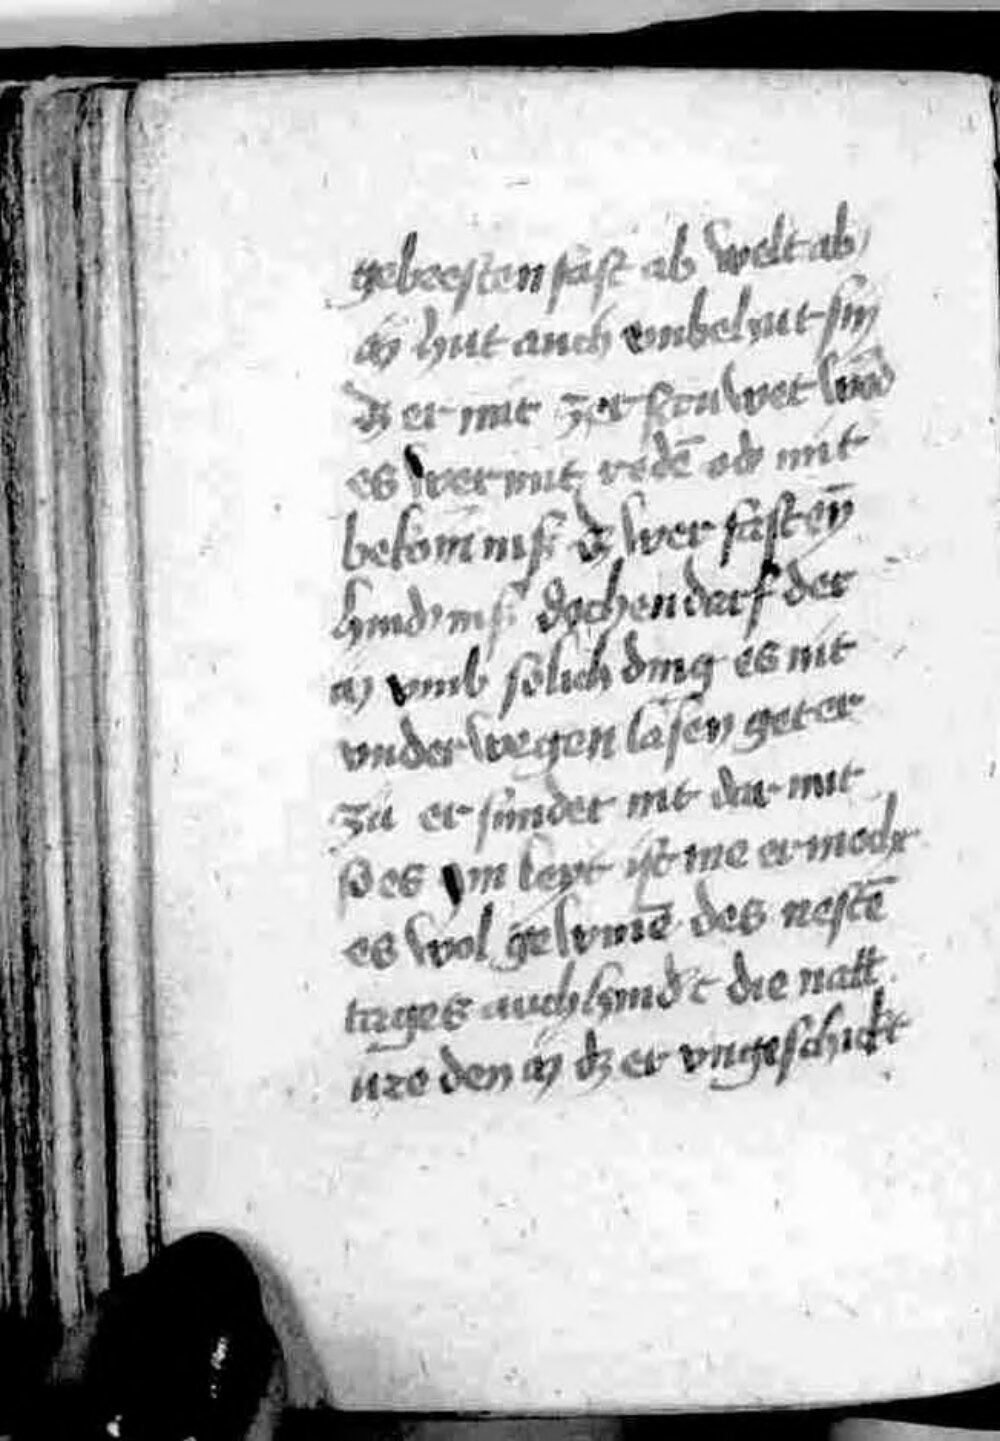 gebresten fast ab welt ab
hut auch vnbehut sin
dz er nit zerströwet
es wer mit redē od mit
bekomnis dz wer fasten
hindnis dochen darf der
vmb sölich ding es nit
vnder wegen lasen get er
zů er sündet nit dar mit
so es ym leyt ist me er mocht
es wol des nestē
tages auch hindt die natt
ure den dz er vngeschickt